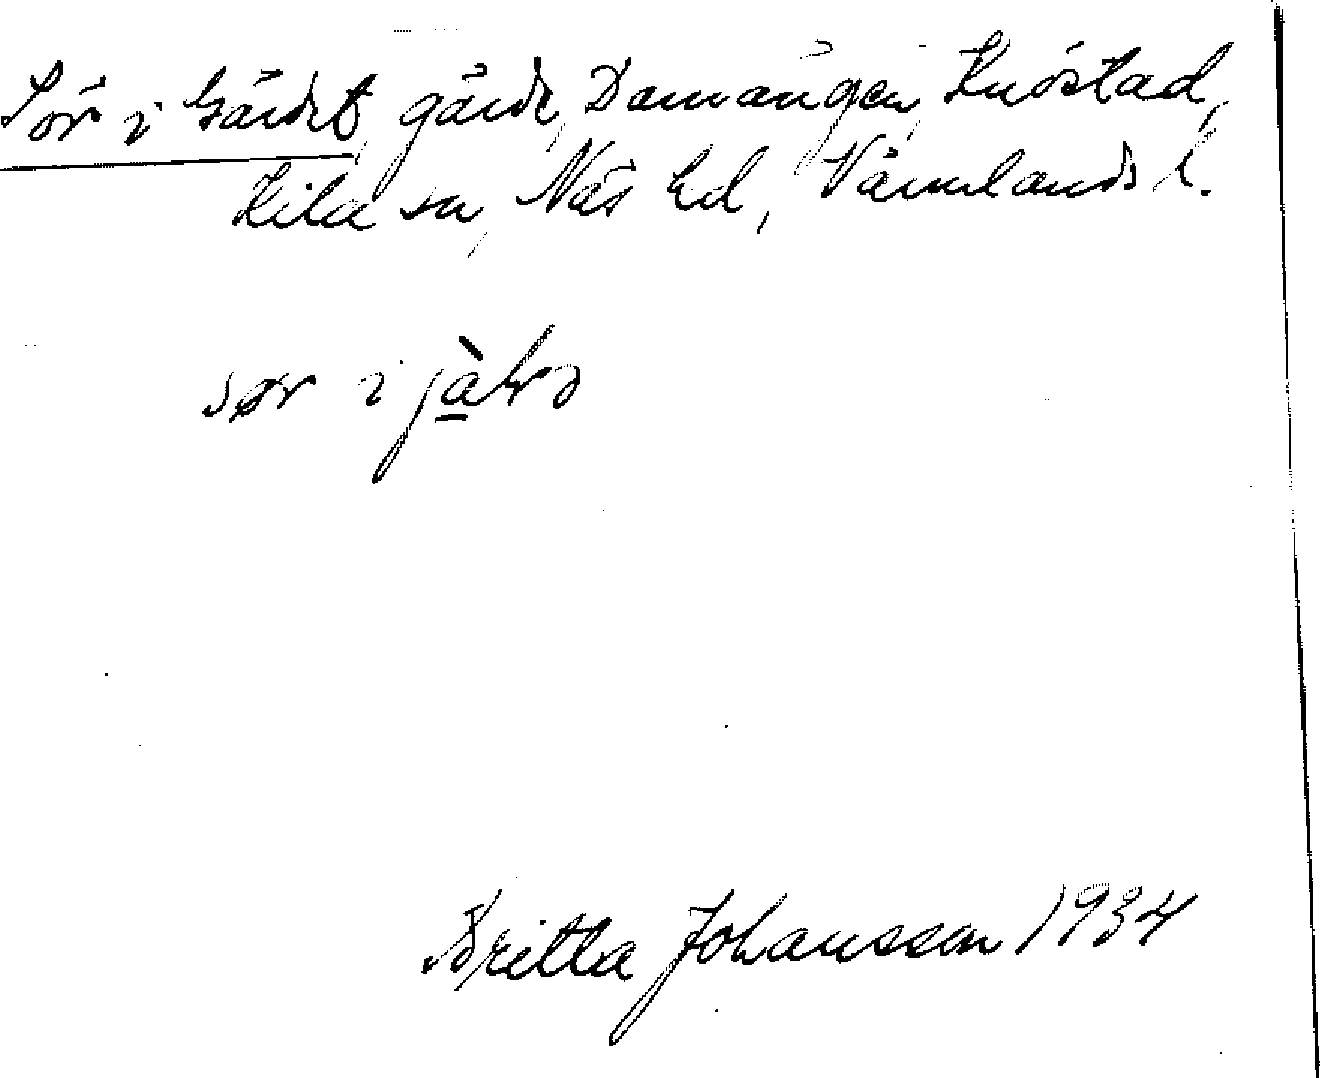 Sör i Gärdet, gärde, Damängen, Knöstad,
Kila sn, Näs hd, Värmlands l.
sør i
Britta Johansson 1934